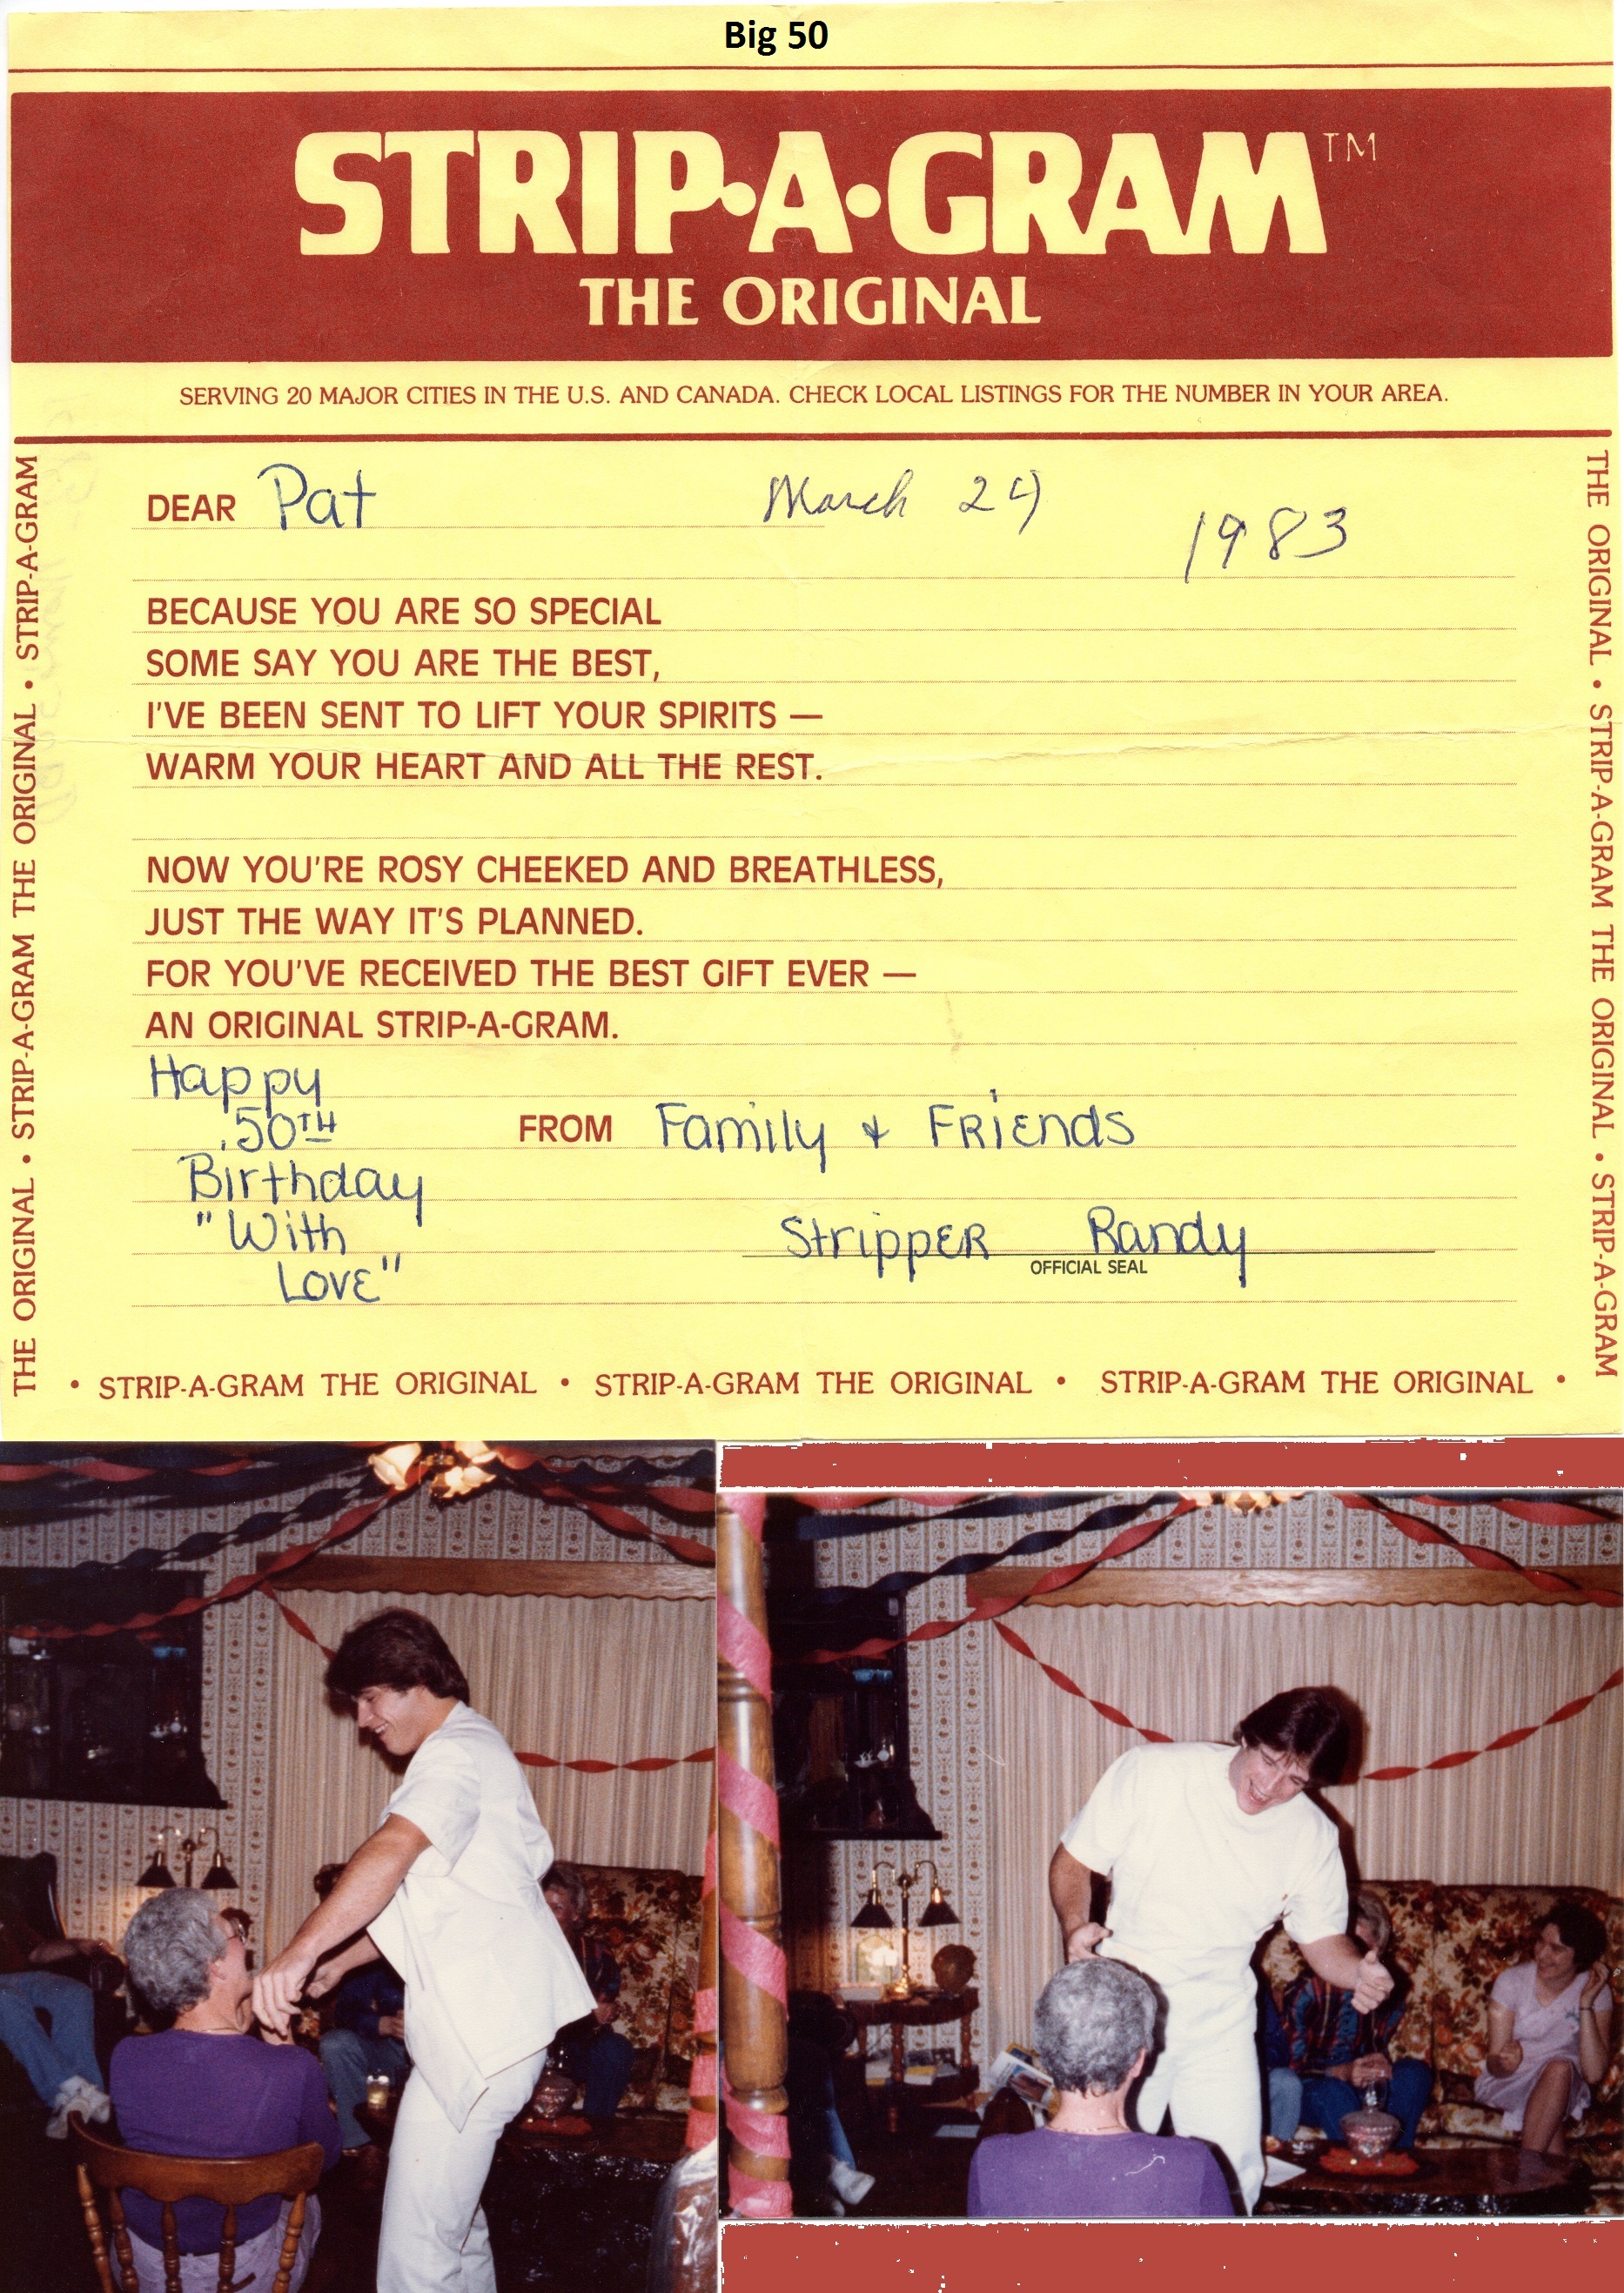 Big 50
STRIP·A·GRAM™
THE ORIGINAL
SERVING 20 MAJOR CITIES IN THE U.S. AND CANADA. CHECK LOCAL LISTINGS FOR THE NUMBER IN YOUR AREA.
DEAR Pat March 24 1983
BECAUSE YOU ARE SO SPECIAL
SOME SAY YOU ARE THE BEST,
I'VE BEEN SENT TO LIFT YOUR SPIRITS —
WARM YOUR HEART AND ALL THE REST.
NOW YOU'RE ROSY CHEEKED AND BREATHLESS,
JUST THE WAY IT'S PLANNED.
FOR YOU'VE RECEIVED THE BEST GIFT EVER —
AN ORIGINAL STRIP-A-GRAM.
Happy
50TH
Birthday
"With
Love"
FROM Family & Friends
Stripper Randy
OFFICIAL SEAL
THE ORIGINAL • STRIP-A-GRAM THE ORIGINAL • STRIP-A-GRAM
THE ORIGINAL • STRIP-A-GRAM THE ORIGINAL • STRIP-A-GRAM
• STRIP-A-GRAM THE ORIGINAL • STRIP-A-GRAM THE ORIGINAL • STRIP-A-GRAM THE ORIGINAL •